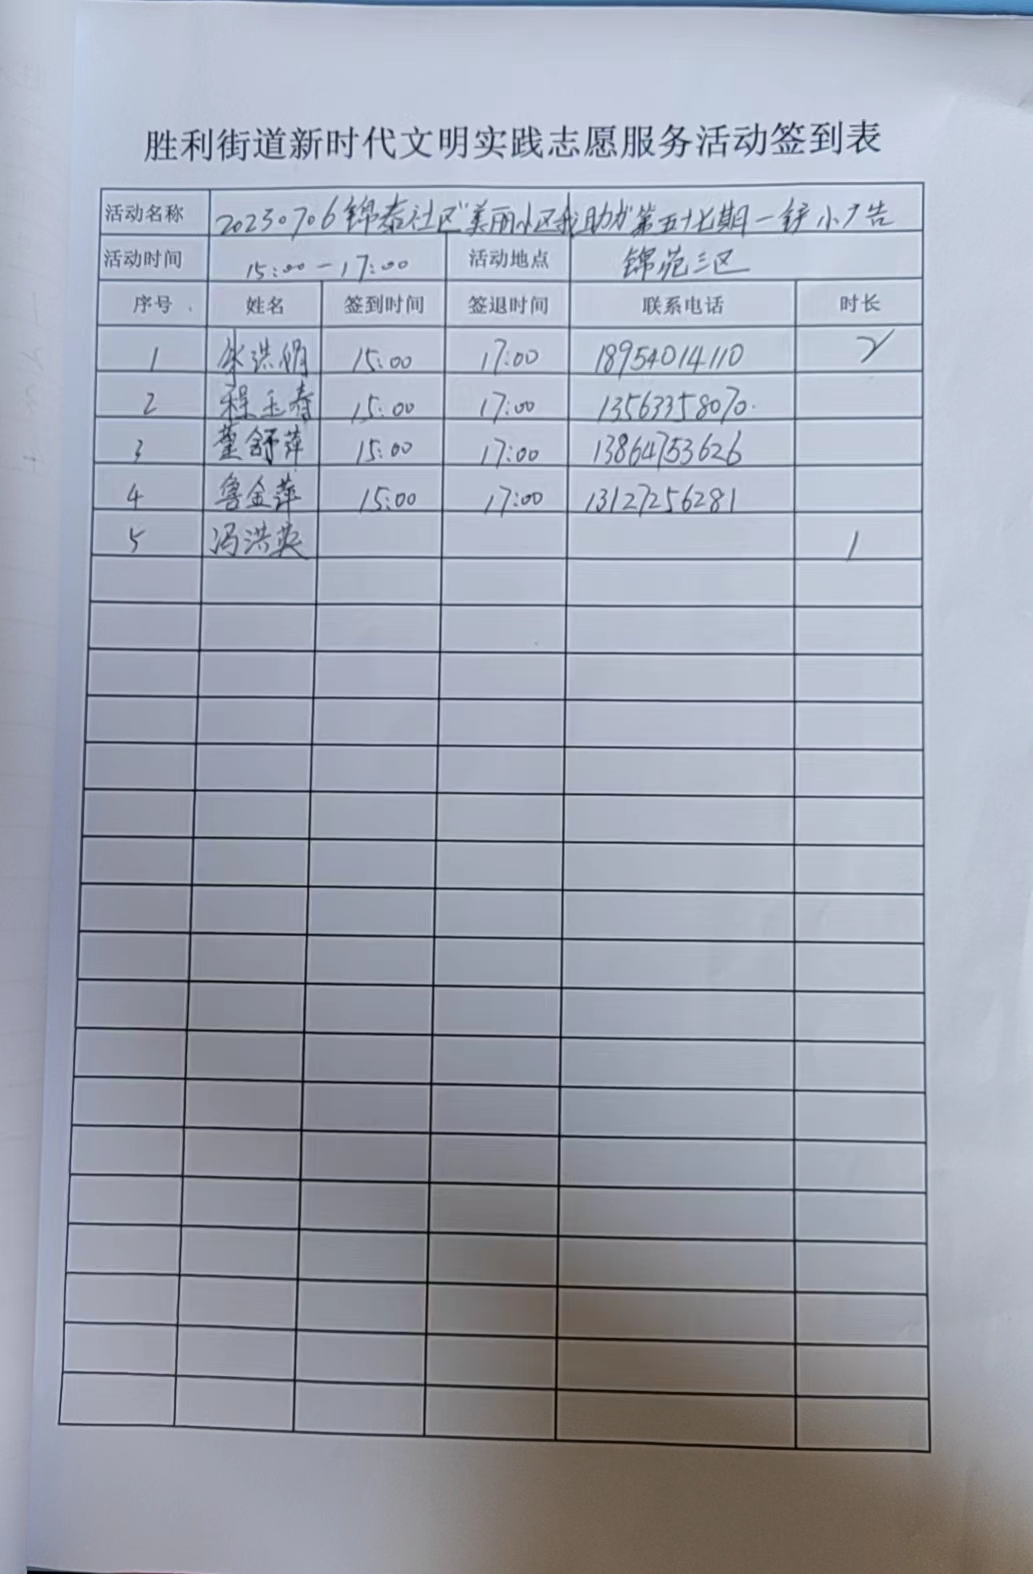 胜利街道新时代文明实践志愿服务活动签到表
活动名称 20230706锦泰社区"美丽小区我助力"第五十七期一铲小广告
活动时间 15:00-17:00 活动地点 锦苑三区
序号 姓名 签到时间 签退时间 联系电话 时长
1 15:00 17:00 18954014110 2
2 程玉春 15:00 17:00 13563358070
3 董舒萍 15:00 17:00 13864753626
4 鲁金萍 15:00 17:00 13127256281
5 冯洪英 1